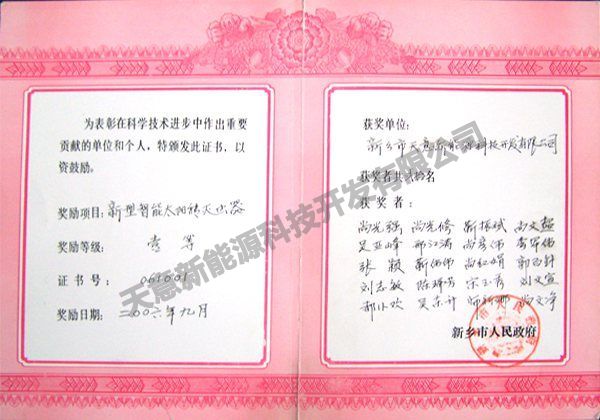 为表彰在科学技术进步中作出重要
贡献的单位和个人，特颁发此证书，以
资鼓励。
奖励项目：新型智能太阳能灭虫器
奖励等级：壹等
证书号：061001
奖励日期：二00六年九月
获奖单位：
新乡市天意新能源科技开发有限公司
获奖者共 名
获奖者：
尚光强 尚光修 靳振斌 尚文超
吴亚峰 邢江涛 尚彦伟
张颖 靳伟伟 尚红娟
刘志敏 宋玉秀 刘文宣
尚文净
新乡市人民政府
天意新能源科技开发有限公司